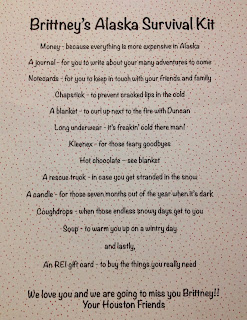 Brittney's Alaska Survival Kit
Money - because everything is more expensive in Alaska
A journal - for you to write about your many adventures to come
Notecards - for you to keep in touch with your friends and family
Chapstick - to prevent cracked lips in the cold
A blanket - to curl up next to the fire with Duncan
Long underwear - it's freakin' cold there man!
Kleenex - for those teary goodbyes
Hot chocolate - see blanket
A rescue truck - in case you get stranded in the snow
A candle - for those seven months out of the year when it's dark
Coughdrops - when those endless snowy days get to you
Soup - to warm you up on a wintry day
and lastly,
An REI gift card - to buy the things you really need
We love you and we are going to miss you Brittney!!
Your Houston Friends